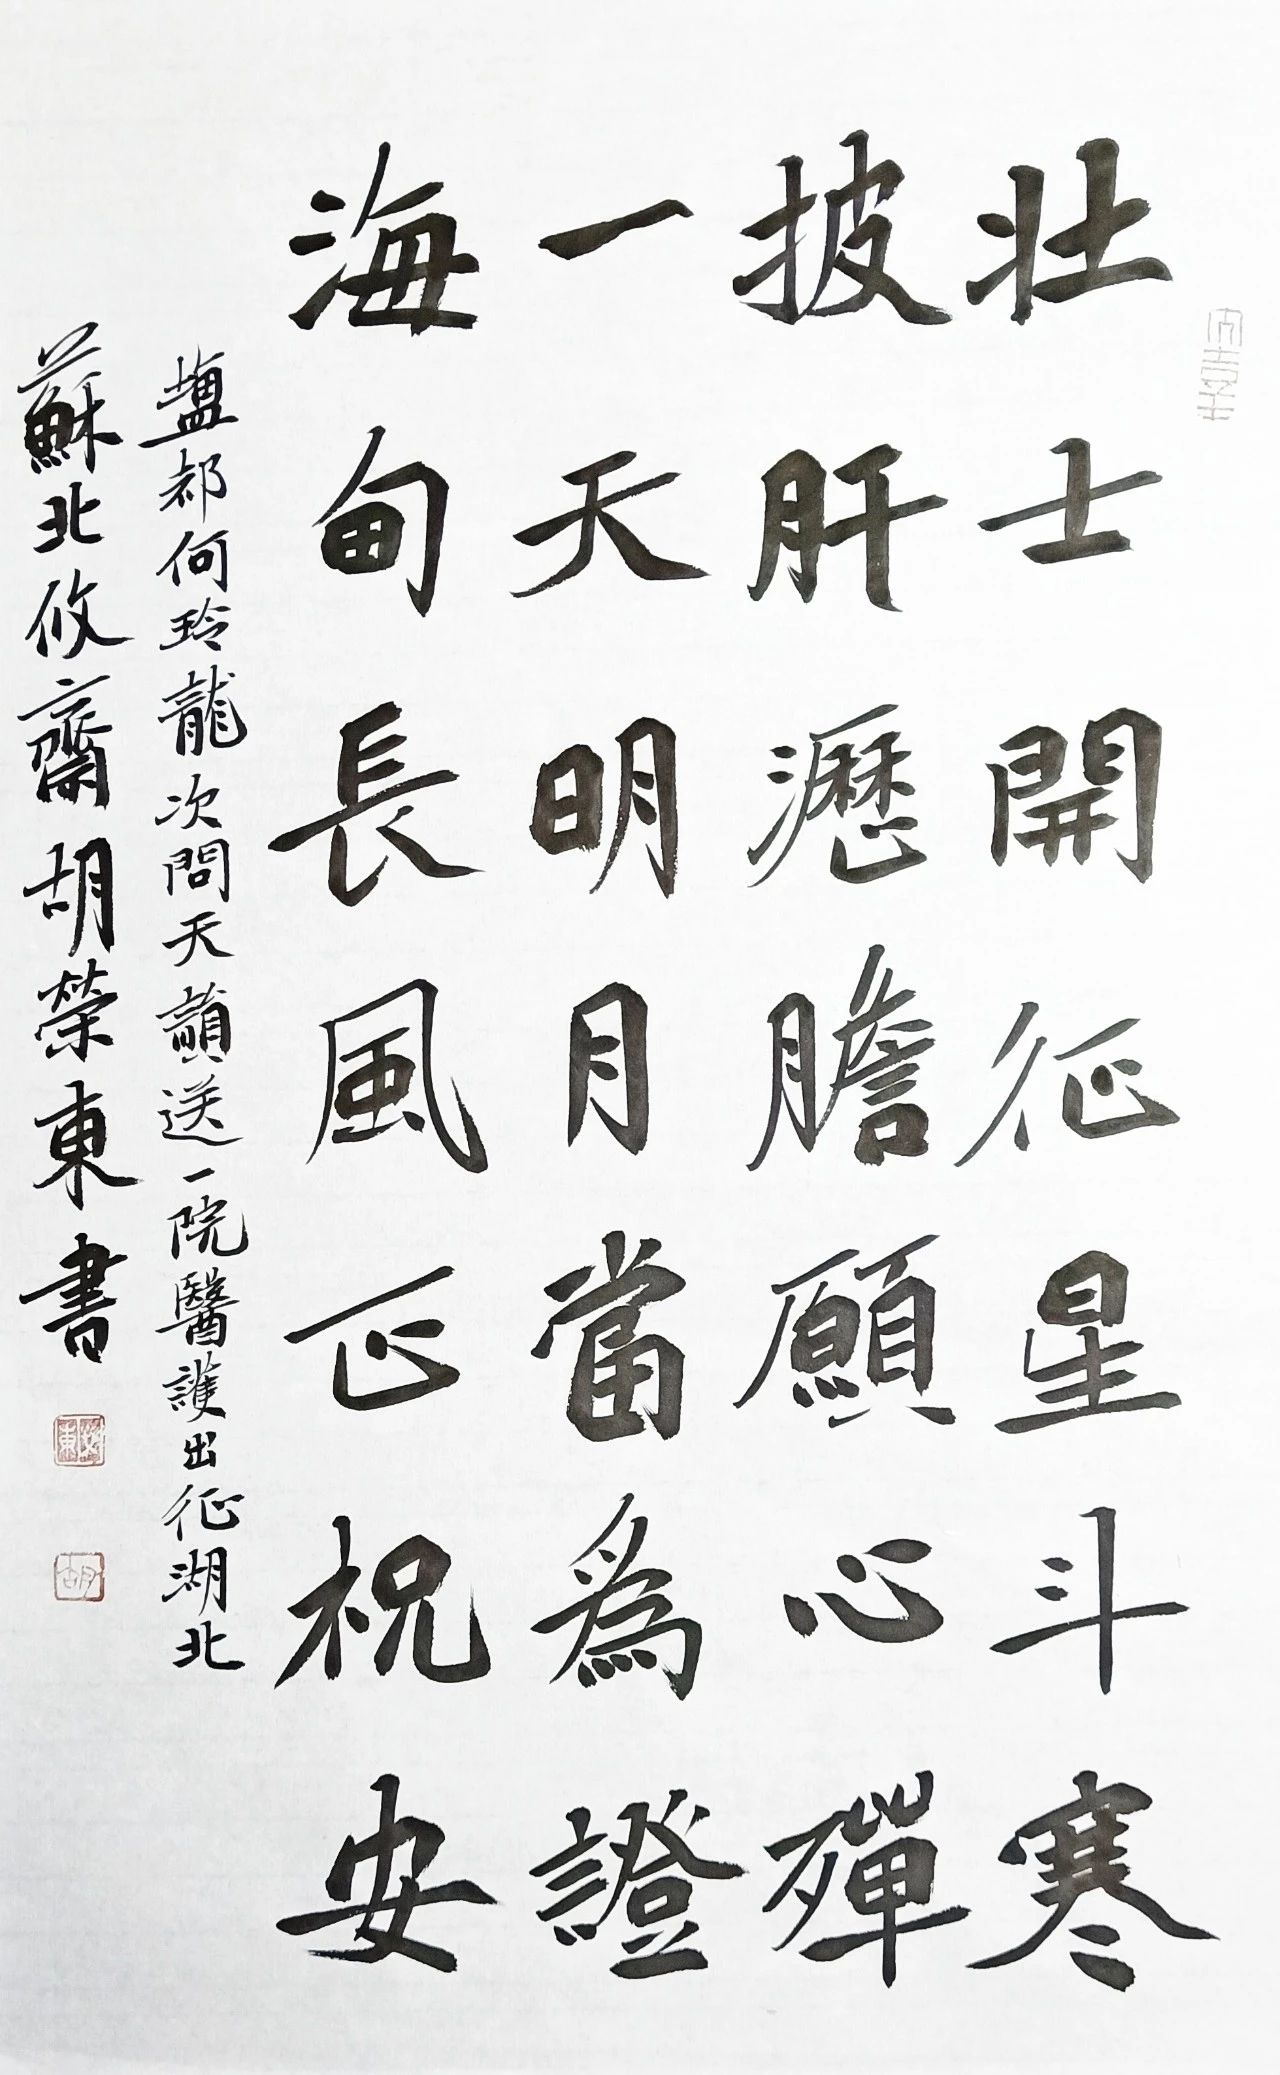 壯士開征星斗寒
披肝瀝膽願心殫
一天明月當爲證
海甸長風正祝安
鹽都何玲龍次問天韻送一院醫護出征湖北
蘇北攸齋胡榮東書
胡